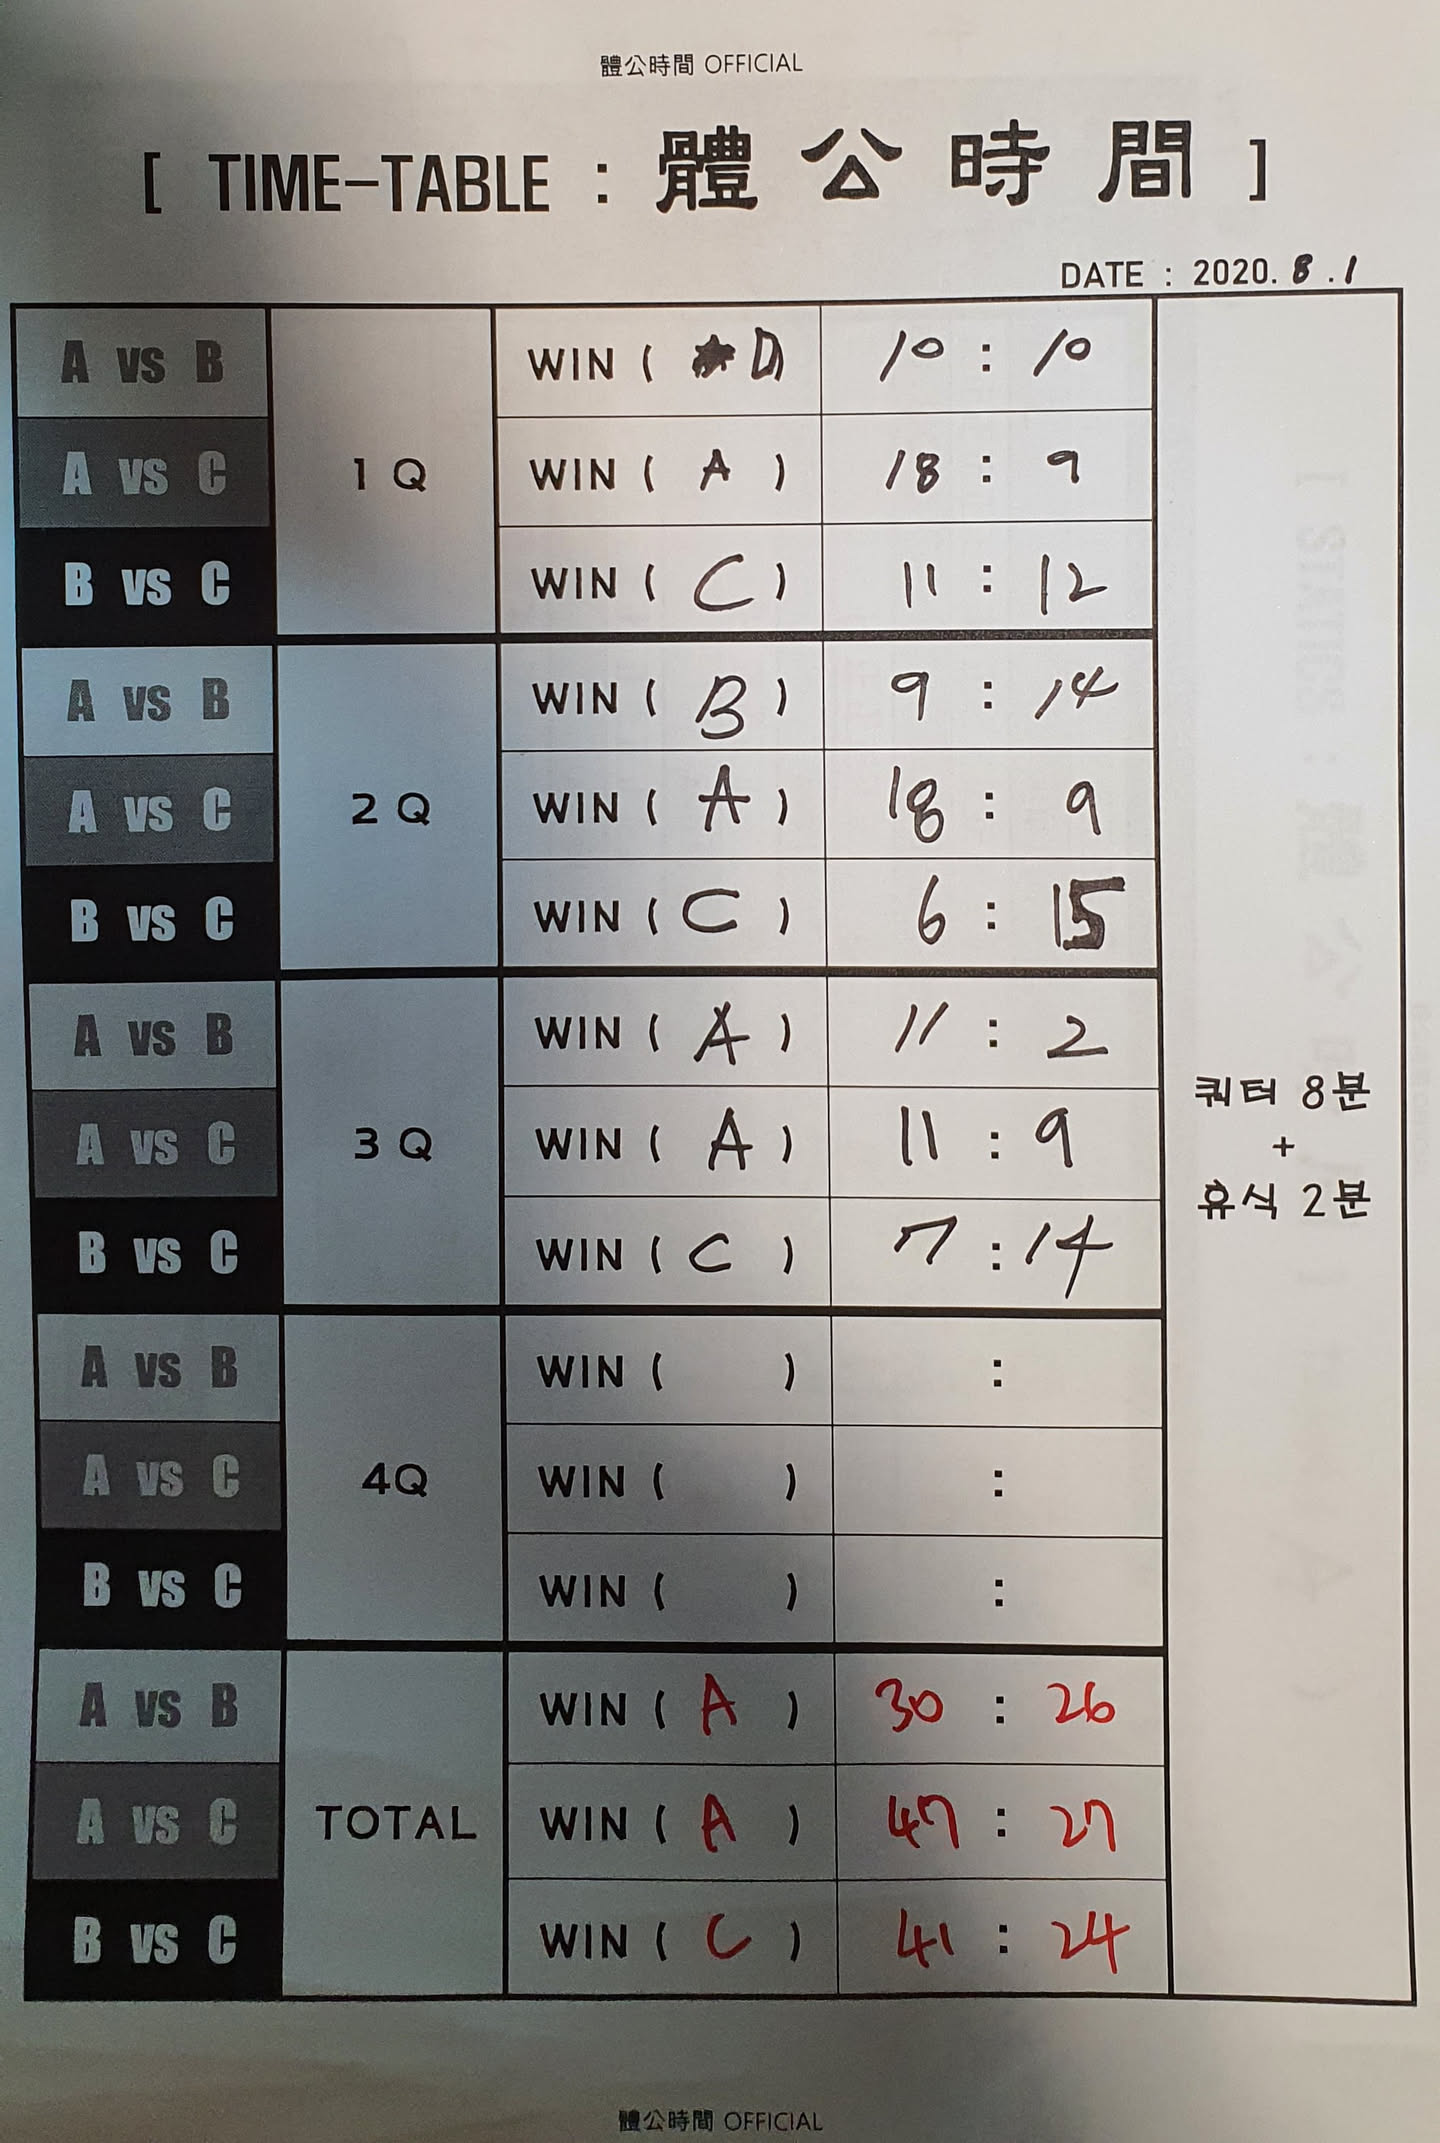 體公時間 OFFICIAL
[ TIME-TABLE : 體公時間 ]
DATE : 2020. 8 . 1
A vs B WIN ( D ) 10 : 10
A vs C 1 Q WIN ( A ) 18 : 9
B vs C WIN ( C ) 11 : 12
A vs B WIN ( B ) 9 : 14
A vs C 2 Q WIN ( A ) 18 : 9
B vs C WIN ( C ) 6 : 15
A vs B WIN ( A ) 11 : 2
A vs C 3 Q WIN ( A ) 11 : 9
B vs C WIN ( C ) 7 : 14
A vs B WIN ( ) :
A vs C 4Q WIN ( ) :
B vs C WIN ( ) :
A vs B WIN ( A ) 30 : 26
A vs C TOTAL WIN ( A ) 47 : 27
B vs C WIN ( C ) 41 : 24
쿼터 8분
+
휴식 2분
體公時間 OFFICIAL